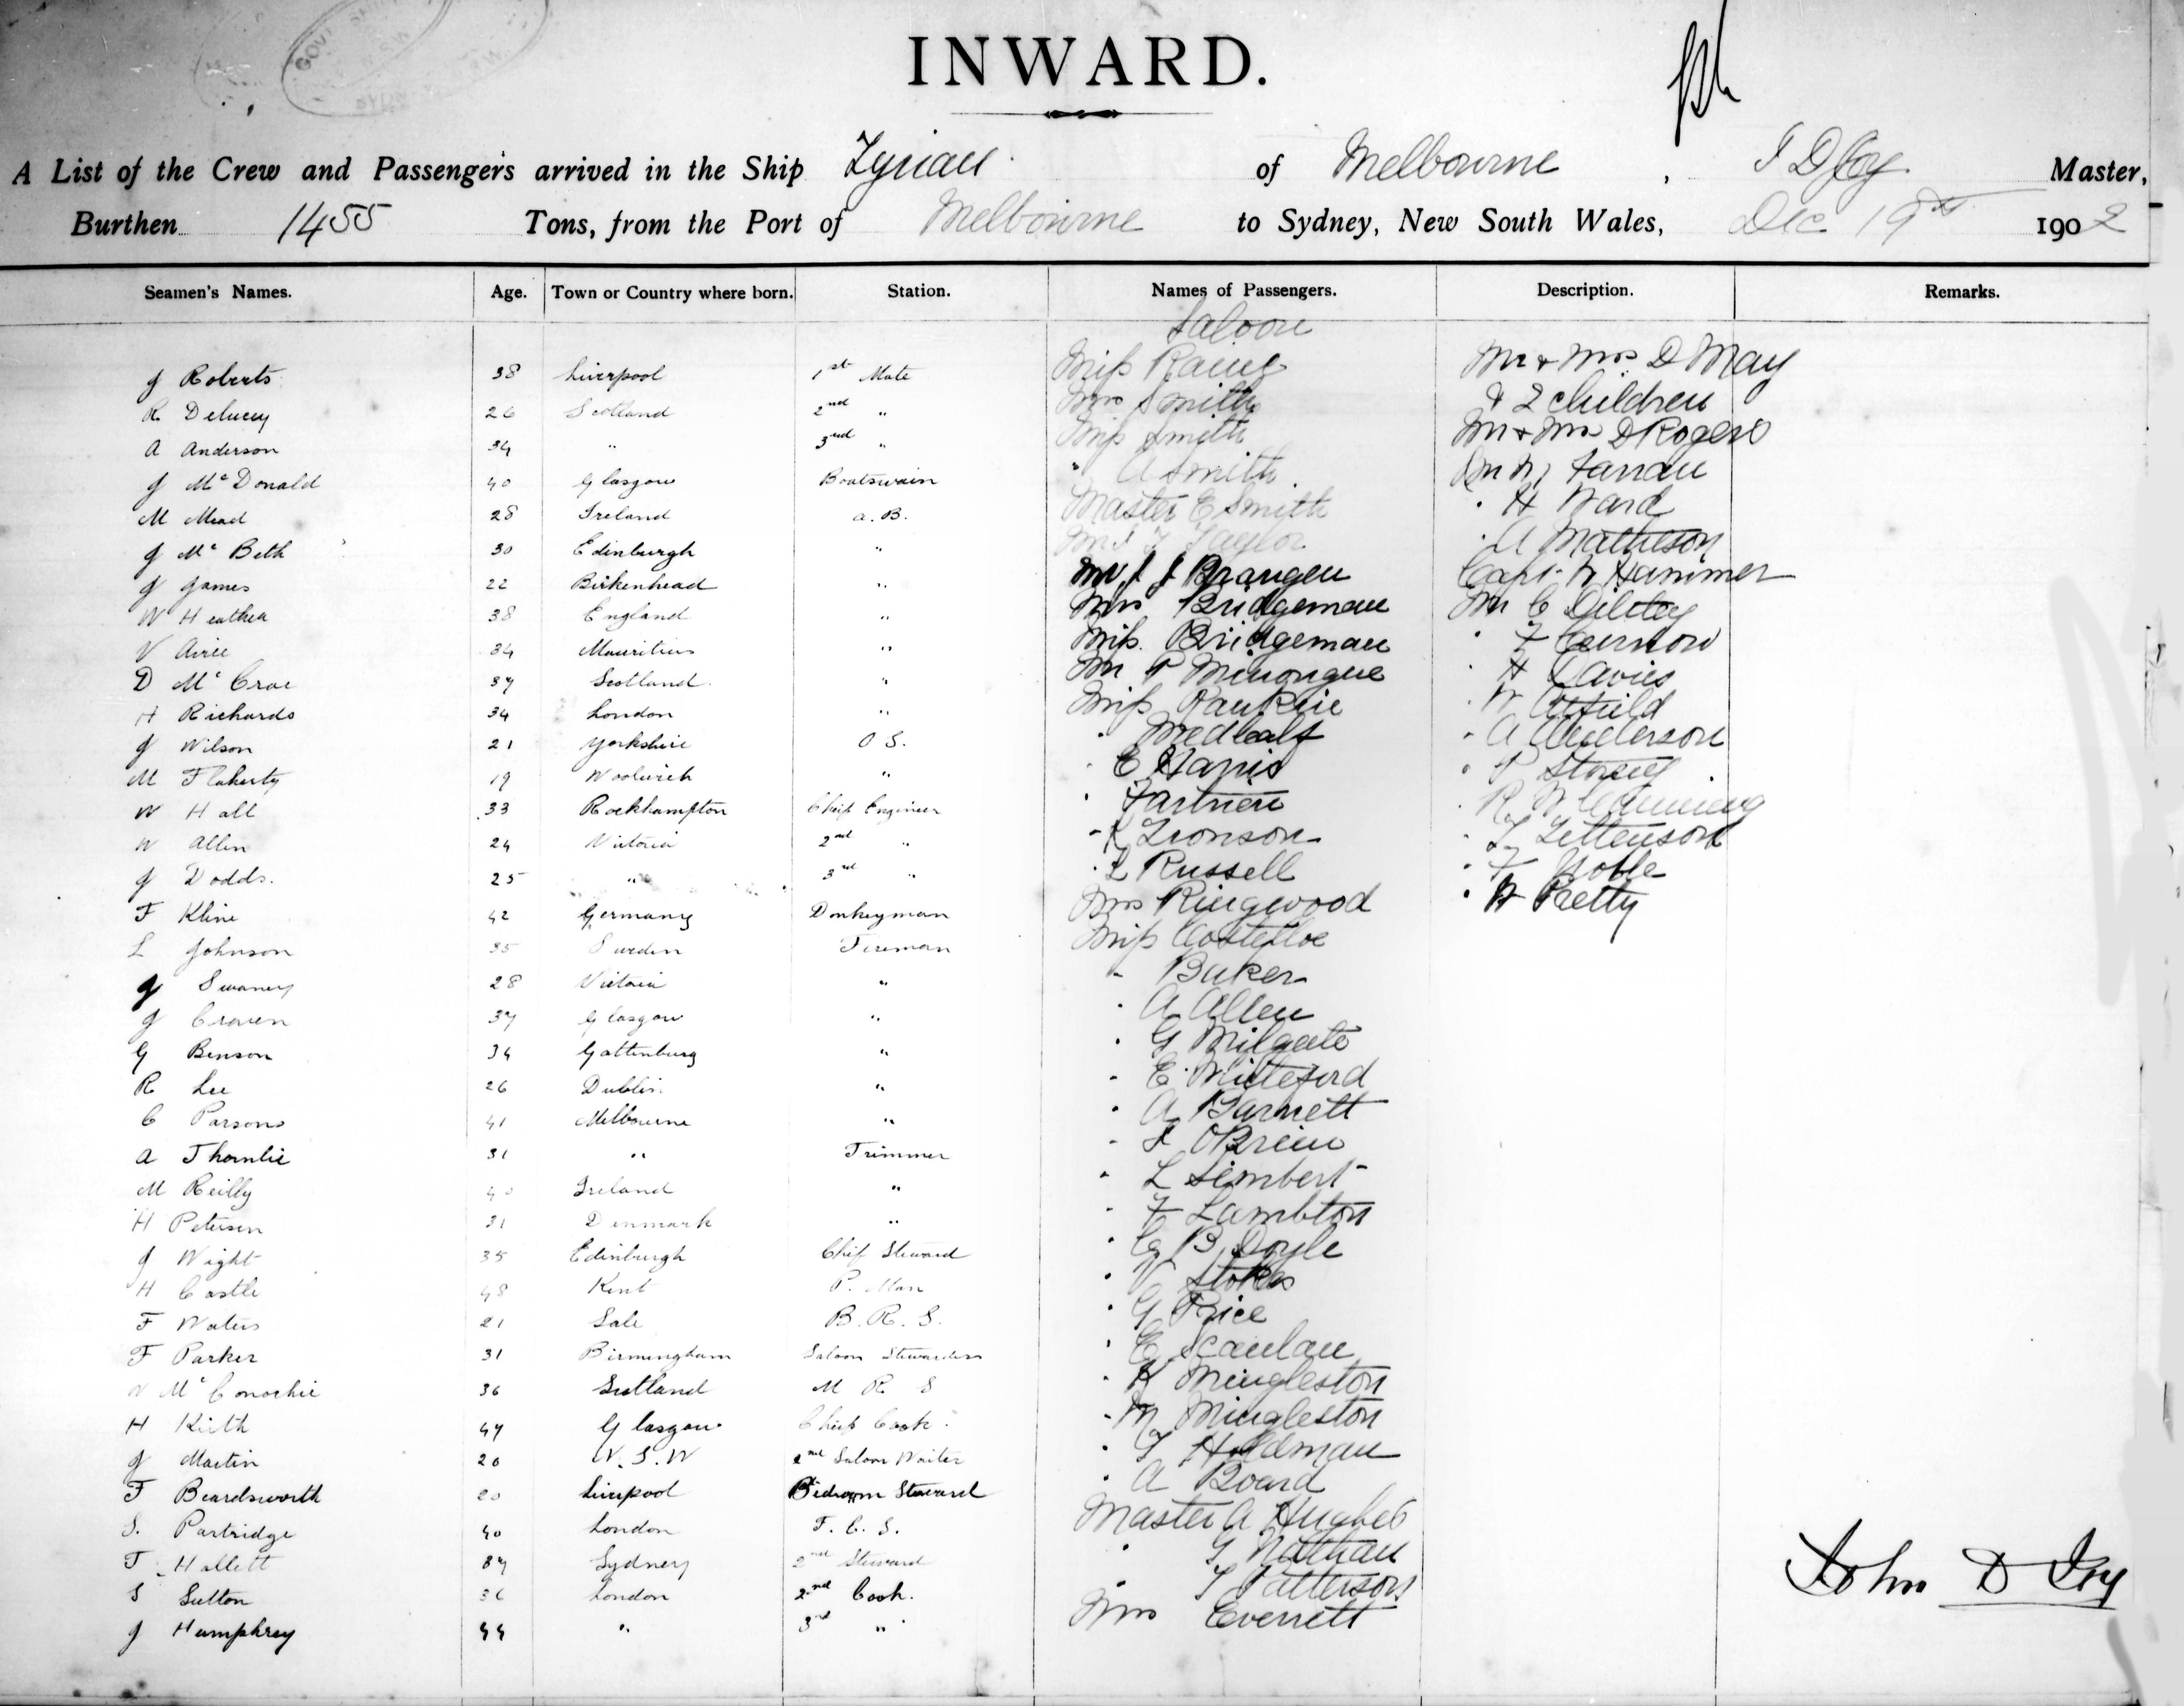 INWARD.
A List of the Crew and Passengers arrived in the Ship Tyrian of Melbourne, Master,
Burthen 1455 Tons, from the Port of Melbourne to Sydney, New South Wales, Dec 19th 1902
Seamen's Names. Age. Town or Country where born. Station. Names of Passengers. Description. Remarks.
Saloon
J Roberts 38 Liverpool 1st Mate
R Delucey 26 Scotland 2nd "
A Anderson 34 " 3rd "
J McDonald 40 Glasgow Boatswain
M Mead 28 Ireland a.B.
J Mc Beth 30 Edinburgh "
J James 22 Birkenhead "
W Heather 38 England "
V Airee 34 Mauritius "
D McCrae 37 Scotland "
H Richards 34 London "
J Wilson 21 Yorkshire O S.
M Flaherty 19 Woolwich "
W Hall 33 Rockhampton Chief Engineer
W Allen 24 Victoria 2nd "
J Dodds. 25 " 3rd "
F Kline 42 Germany Donkeyman
L Johnson 35 Sweden Fireman
J Swaney 28 Victoria "
J Craven 37 Glasgow "
G Benson 34 Gottenburg "
R Lee 26 Dublin "
C Parsons 41 Melbourne "
A Thornlie 31 " Trimmer
M Reilly 40 Ireland "
H Petersen 31 Denmark "
J Wight 35 Edinburgh Chief Steward
H Castle 48 Kent P. Man
F Waters 21 Sale B. R. S.
F Parker 31 Birmingham Saloon Stewardess
McConochie 36 Scotland M R S
H Keith 47 Glasgow Chief Cook
J Martin 20 N.S.W 2nd Saloon Waiter
F Beardsworth 20 Liverpool Bedroom Steward
S. Partridge 40 London F. C. S.
T Hallett 37 Sydney 2nd Steward
S Sutton 36 London 2nd Cook.
J Humphrey 44 " 3rd "
Miss Raung
Mrs Smith
Miss Smith
" A Smith
Master E Smith
Taylor
Mr J J Brangen
Mrs Bridgeman
Miss Bridgeman
Mr P Minongue
Miss Rankin
" Medcalf
" E Harris
"
" K Tronson
" L Russell
Mrs Ringwood
Miss Costelloe
" Baker
" A Allen
" G Milgate
" E Whiteford
" A Barnett
" J OBrien
" L Limbert
" F Lambton
" B Doyle
" V Stokes
" G Price
" E Scanlan
" K Mingleston
" M Mingleston
" T Holdman
" A Board
Master A Hughes
" G Nathan
" T Patterson
Mrs Everett
Mr & Mrs D May
& 2 children
Mr & Mrs D Rogers
Mr W Farran
" H Ward
" A Matheson
Capt. W Hammer
Mr C Dilley
" F Curnow
" H Davies
" W Attfield
" A Anderson
" P Storey
" R W Cumming
" T Tettenson
" F Noble
" W Pretty
John D Joy